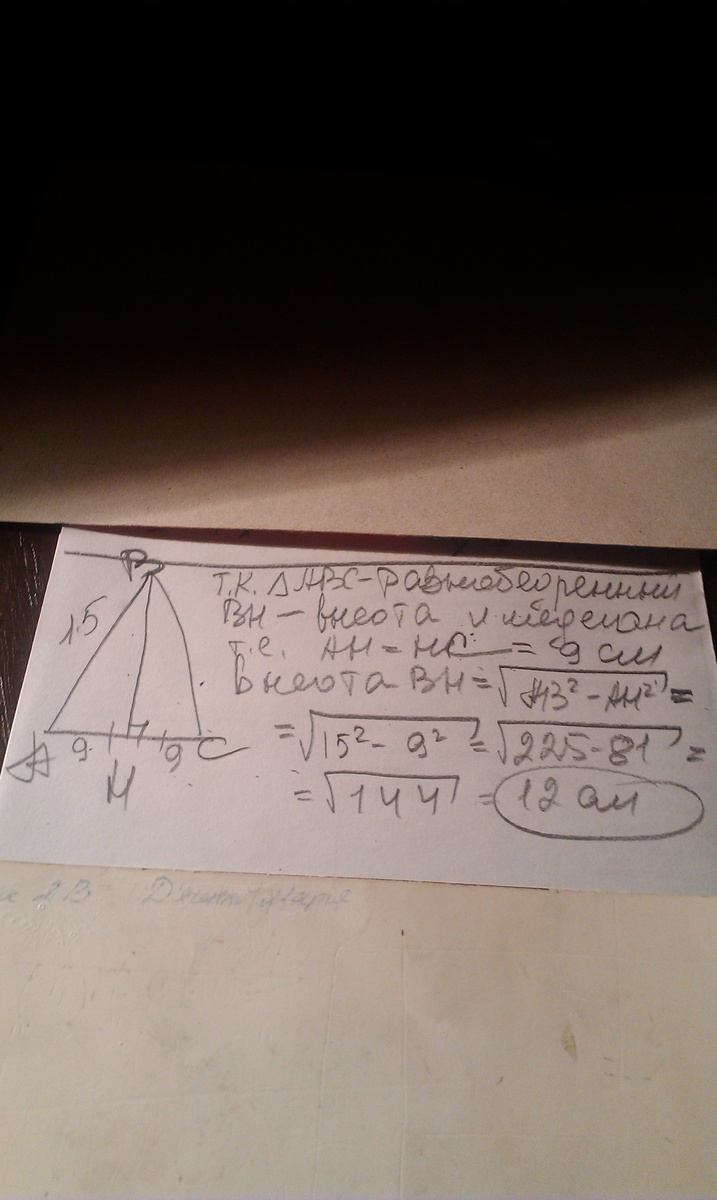 В
1.5
A
9
9
C
H
т.к. ΔABC-равнобедренный
BH - высота и медиана
т.е. AH = HC = 9 см
Высота BH = √AB² - AH² =
= √15² - 9² = √225-81 =
= √144 = 12 см
2B